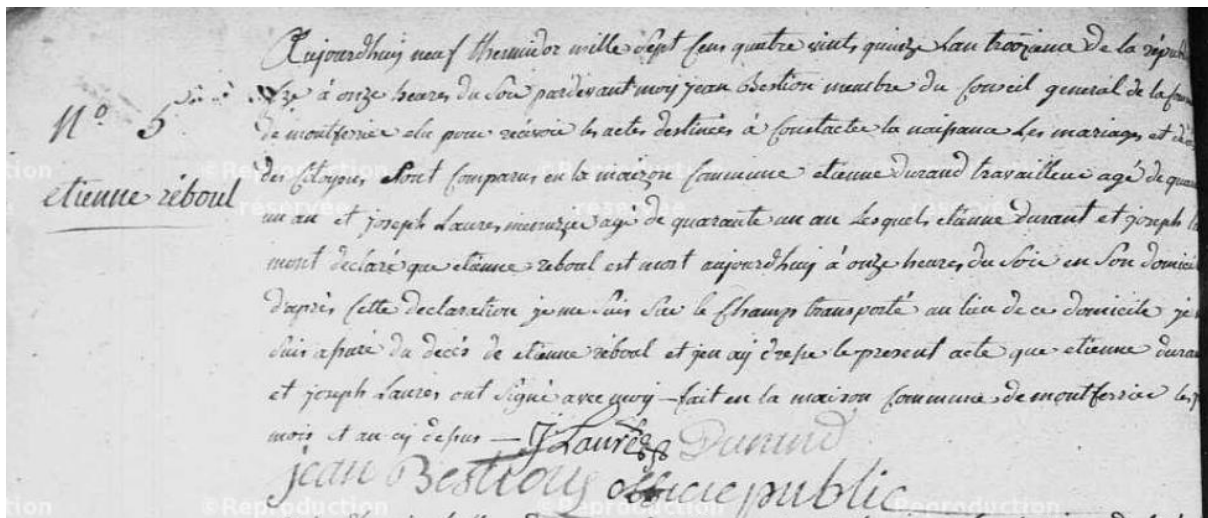 Aujourdhuy neuf thermidor mille sept cens quatre vints quinze Lan troizieme de la républ
à onze heures du soir pardevant moy jean Bestion membre du conseil general de la com
N° 5
de montferrier elu pour recevoir les actes destinées à constater la naissance les mariages et
etienne réboul
des citoyens sont comparus en la maizon commune etienne durand travailleur agé de quara
un an et joseph Laures menuzier agé de quarante un an Lesquels etienne durant et joseph L
mont declaré que etienne reboul est mort aujourdhuy à onze heures du soir en son domicil
d'après cette declaration je me suis sur le champs transporté au lieu de ce domicile je
suis assuré du decès de etienne réboul et jen ay dressé le present acte que etienne duran
et joseph Laures ont signé avec moy – fait en la maison commune de montferrier les
mois et an cy dessus — J Laurès Durand
jean Bestion officie public
©Reproduction
réservée